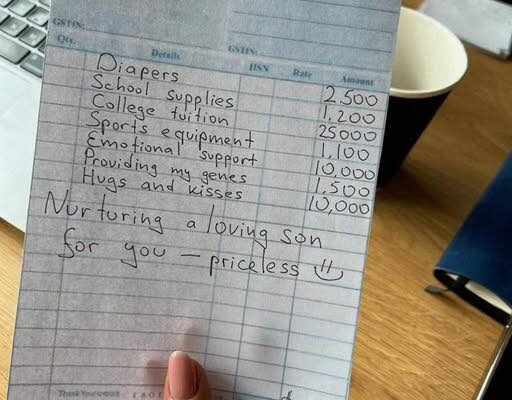 GSTIN:
GSTIN:
Qty. Details HSN Rate Amount
Diapers 2.500
School supplies 1,200
College tuition 25000
Sports equipment 1,100
Emotional support 10,000
Providing my genes 1,500
Hugs and kisses 10,000
Nurturing a loving son
for you – priceless
Thank You
E & O.E